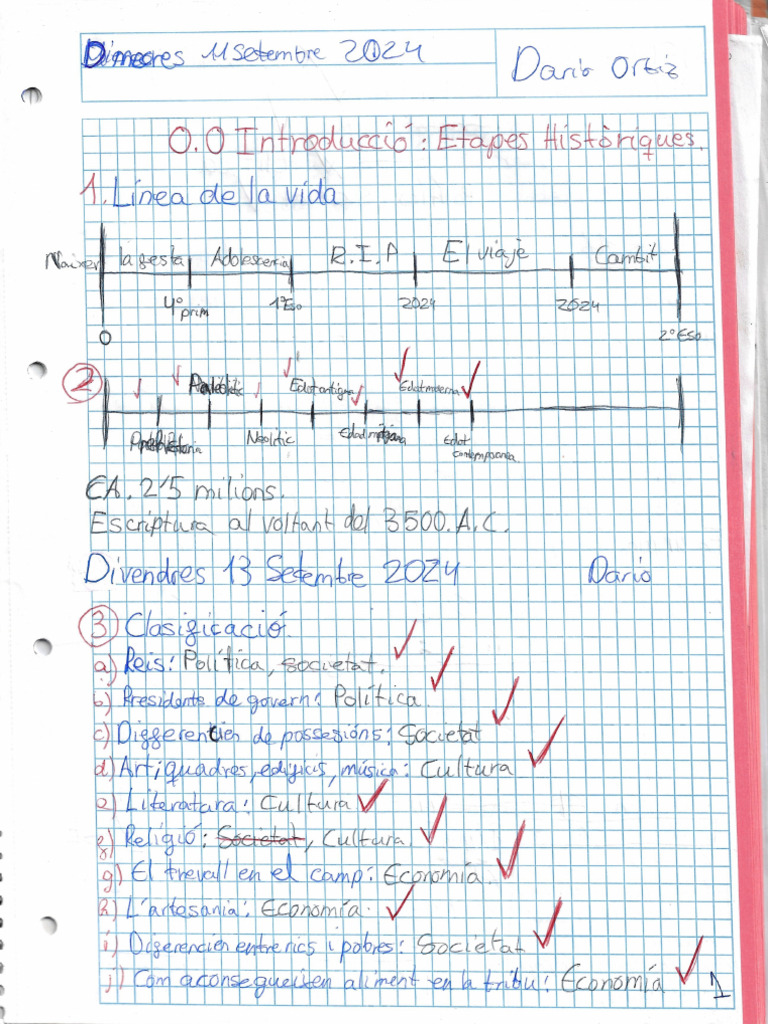 Dimecres 11 Setembre 2024
Dario Ortiz
0.0 Introducció: Etapes Històriques.
1. Línea de la vida
Naixer la festa Adolescencia R.I.P El viaje Cambit
0 4º prim 1º Eso 2024 2024 2º ESO
2
Paleolitic Edat antigua Edat moderna
Prehistoria Neolitic Edad mitjana Edat contemporania.
CA. 2'5 milions.
Escriptura al voltant del 3500. A.C.
Divendres 13 Setembre 2024 Dario
3 Clasificació.
a) Reis: Política, societat.
b) Presidents de govern: Política.
c) Diferencien de possesións: Societat
d) Art, quadres, edificis, música: Cultura
e) Literatura: Cultura
f) Religió: Societat, Cultura.
g) El trevall en el camp: Economía.
h) L'artesania: Economía.
i) Diferencien entre rics i pobres: Societat
j) Com aconsegueixen aliment en la tribu: Economía
1